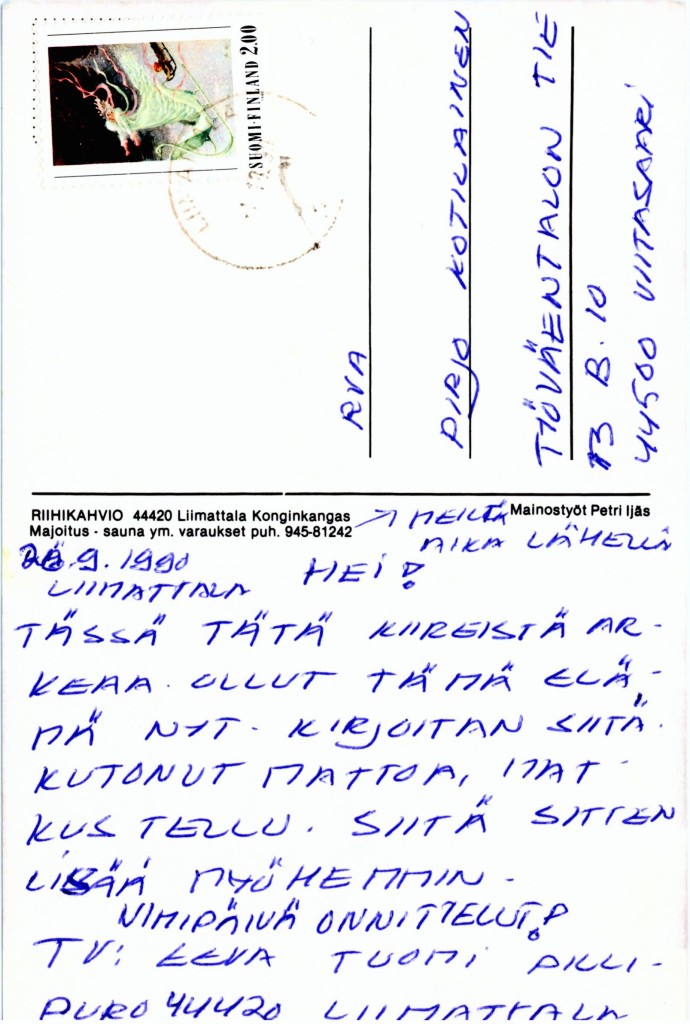 SUOMI-FINLAND 2.00
RVA
PIRJO KOTILAINEN
TYÖVÄENTALON TIE
13 B. 10
44500 VIITASAARI
RIIHIKAHVIO 44420 Liimattala Konginkangas
Majoitus - sauna ym. varaukset puh. 945-81242
Mainostyöt Petri Ijäs
→ MEILTÄ
AIKA LÄHELLÄ
9.1990
LIIMATTALA
HEI!
TÄSSÄ TÄTÄ KIIREISTÄ AR-
KEAA. OLLUT TÄMÄ ELÄ-
MÄ NYT. KIRJOITAN SIITÄ.
KUTONUT MATTOA, MAT-
KUSTELLU. SIITÄ SITTEN
LISÄÄ MYÖHEMMIN.
NIMIPÄIVÄ ONNITTELUT!
TV: EEVA TUOMI PILLI-
PURO 44420 LIIMATTALA